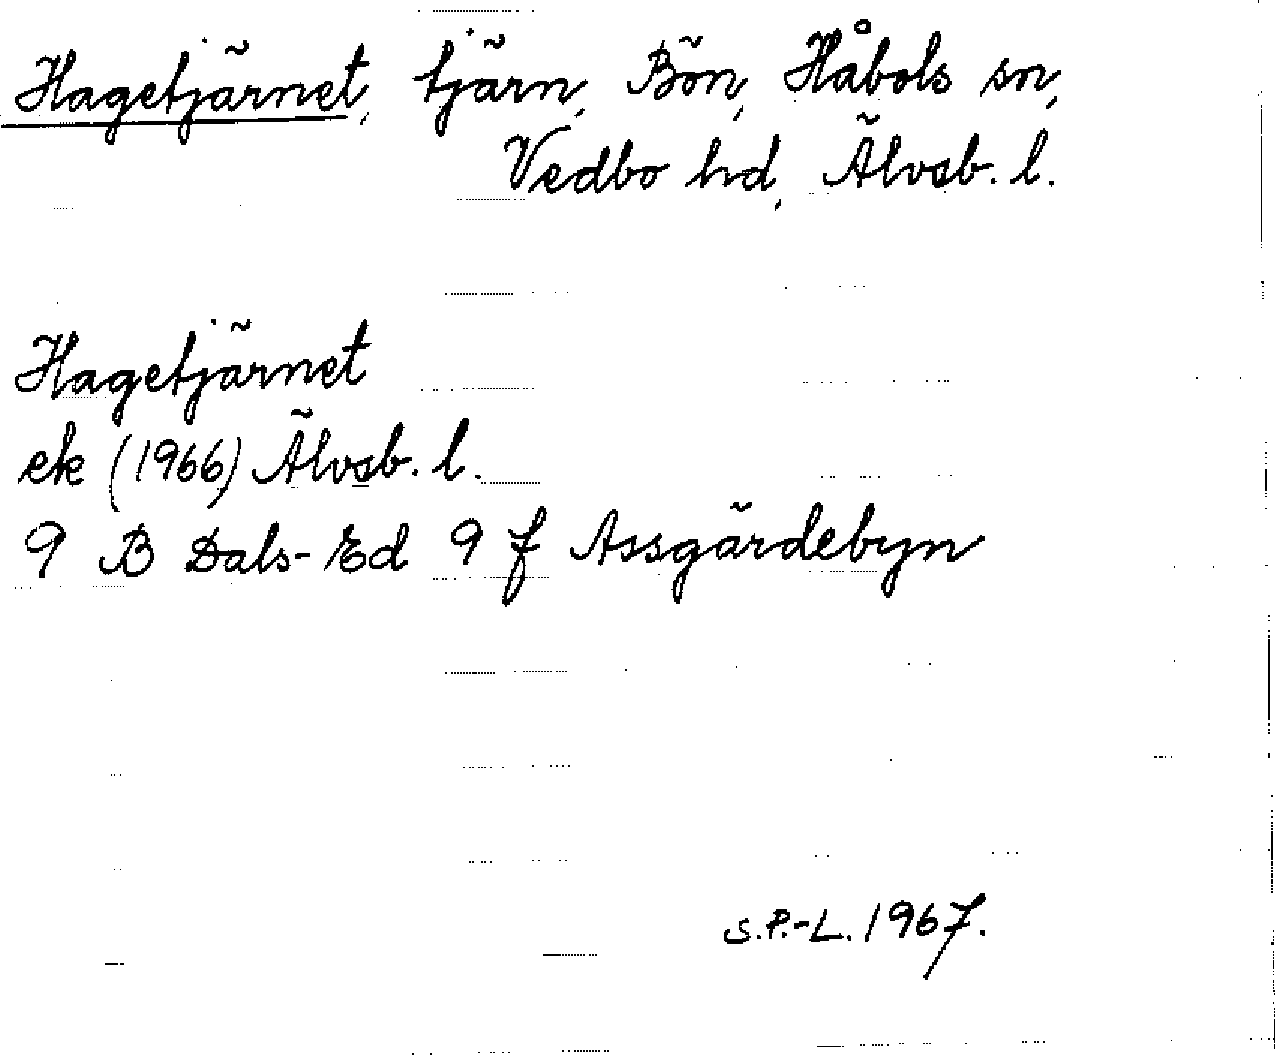 Hagetjärnet, tjärn, Bön, Håbols sn,
Vedbo hd, Älvsb. l.
Hagetjärnet
ek (1966) Älvsb. l.
9 B Dals-Ed 9 f Assgärdebyn
S.P.-L. 1967.